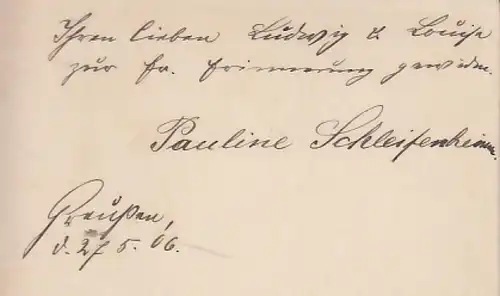 Ihren lieben Ludwig & Louise
zur fr. Erinnerung gewidm.
Pauline Schleifenheimer.
Greußen,
d. 27 5. 06.